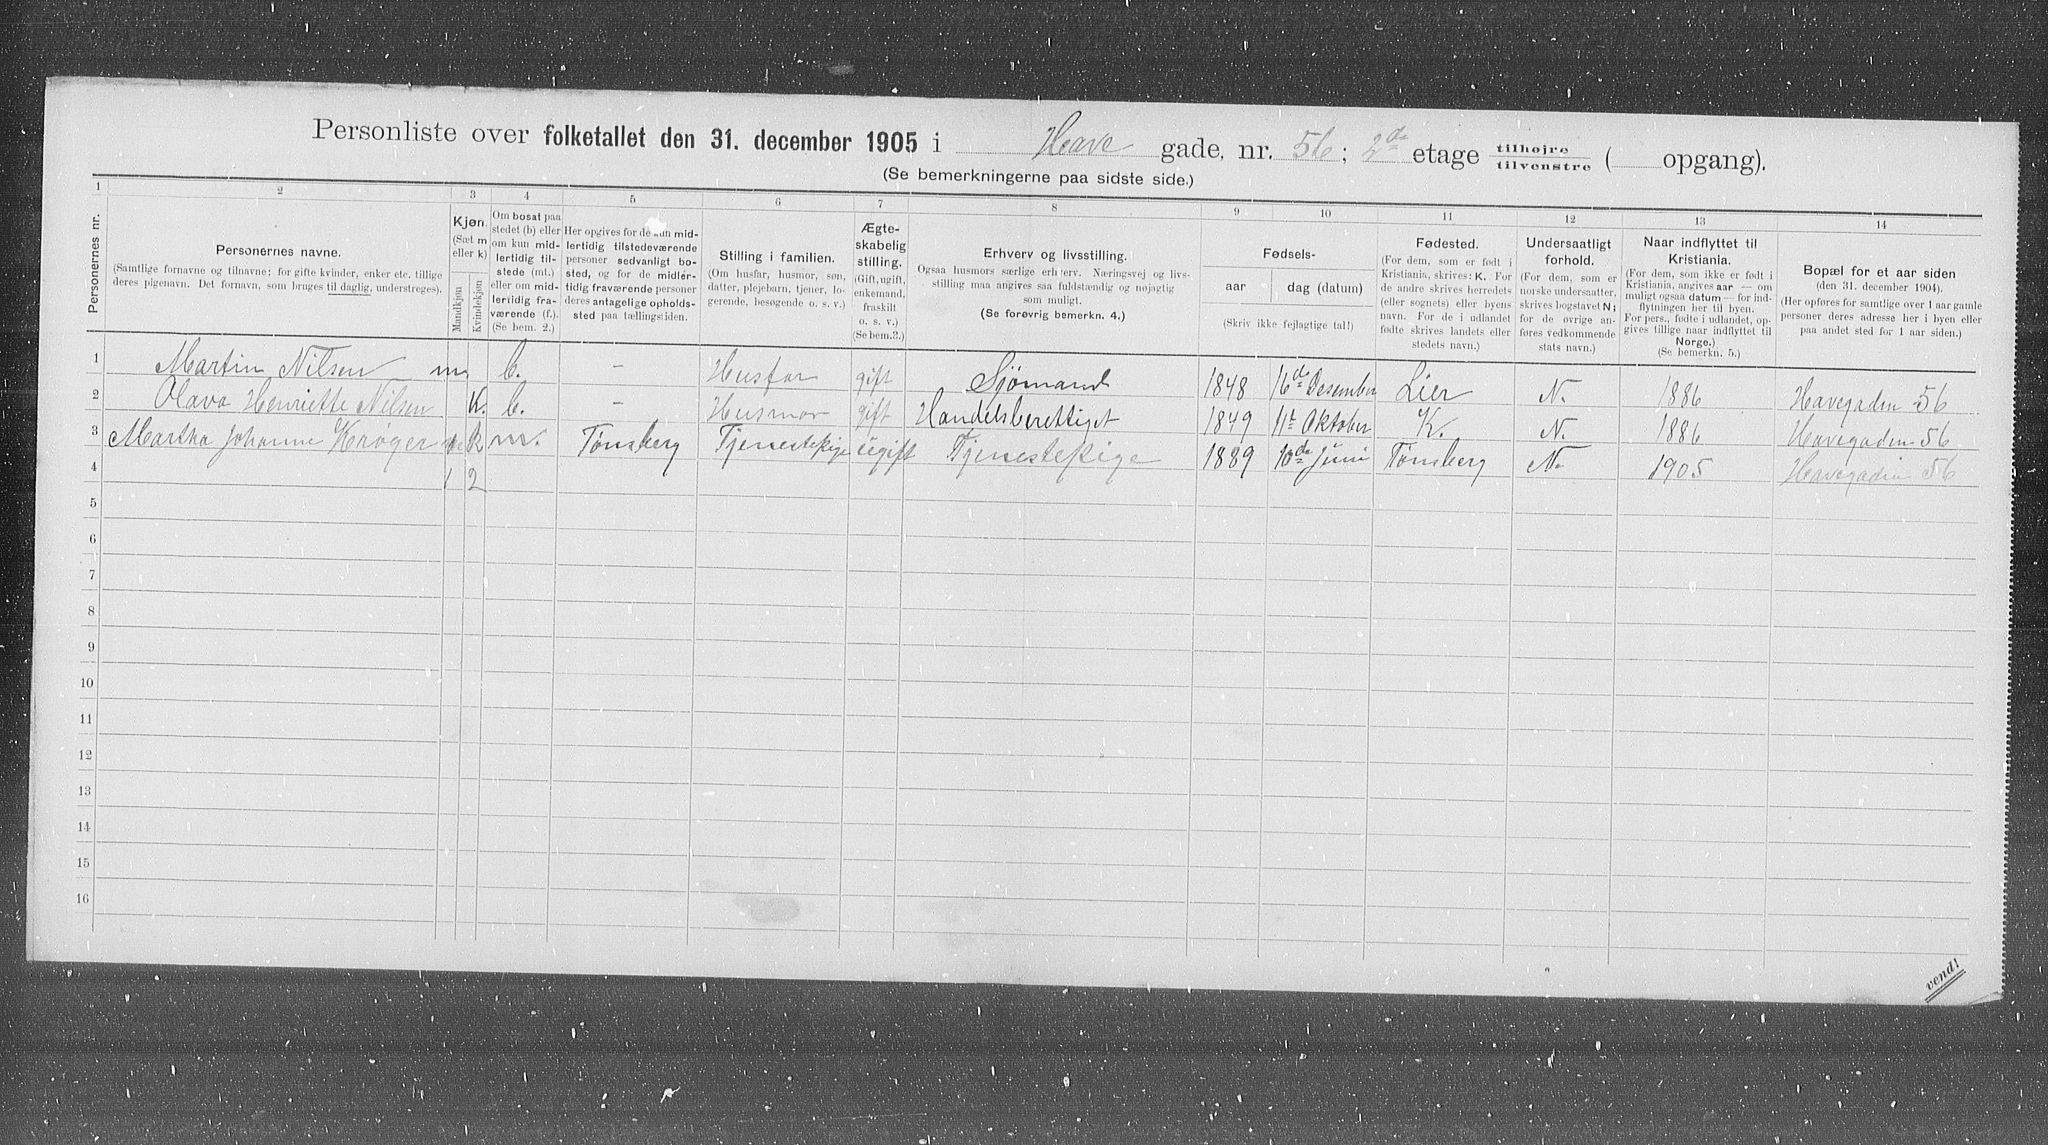 Personliste over folketallet den 31. december 1905 i Have gade, nr. 56; 2de etage tilhøjre tilvenstre ( opgang).
(Se bemerkningerne paa sidste side.)
1 2 3 4 5 6 7 8 9 10 11 12 13 14
Personernes nr.
Personernes navne.
(Samtlige fornavne og tilnavne; for gifte kvinder, enker etc. tillige
deres pigenavn. Det fornavn, som bruges til daglig, understreges).
Kjøn.
(Sæt m
eller k)
Mandkjøn
Kvindekjøn
Om bosat paa
stedet (b) eller
om kun mid-
lertidig til-
stede (mt.)
eller om mid-
lertidig fra-
værende (f.).
(Se bem. 2.)
Her opgives for de kun mid-
lertidig tilstedeværende
personer sedvanligt bo-
sted, og for de midler-
tidig fraværende personer
deres antagelige opholds-
sted paa tællingstiden.
Stilling i familien.
(Om husfar, husmor, søn,
datter, plejebarn, tjener, lo-
gerende, besøgende o. s. v.)
Ægte-
skabelig
stilling.
(Gift, ugift,
enkemand,
fraskilt
o. s. v.)
(Se bem.3.)
Erhverv og livsstilling.
Ogsaa husmors særlige erhverv. Næringsvej og livs-
stilling maa angives saa fuldstændig og nøjagtig
som muligt.
(Se forøvrig bemerkn. 4.)
Fødsels-
aar dag (datum)
(Skriv ikke fejlagtige tal!)
Fødested.
(For dem, som er født i
Kristiania, skrives: K. For
de andre skrives herredets
(eller sognets) eller byens
navn. For de i udlandet
fødte skrives landets eller
stedets navn.)
Undersaatligt
forhold.
(For dem, som er
norske undersaatter,
skrives bogstavet N;
for de øvrige an-
føres vedkommende
stats navn.)
Naar indflyttet til
Kristiania.
(For dem, som ikke er født i
Kristiania, angives aar — om
muligt ogsaa datum — for ind-
flytningen her til byen.
For pers., fødte i udlandet, op-
gives tillige naar indflyttet til
Norge.)
(Se bemerkn. 5.)
Bopæl for et aar siden
(den 31. december 1904).
(Her opføres for samtlige over 1 aar gamle
personer deres adresse her i byen eller
paa andet sted for 1 aar siden.)
1 Martin Nilsen m. b. - Husfar gift Sjömand 1848 16de Desember Lier N. 1886 Havegaden 56
2 Olava Henriette Nilsen K. b. - Husmor gift Handelsberettiget 1849 11te Oktober K. N. 1886 Havegaden 56
3 Martha Johanne Krøger k m. Tønsberg Tjenestepige ugift Tjenestepige 1889 10de Juni Tønsberg N. 1905 Havegaden 56
4 1 2
5
6
7
8
9
10
11
12
13
14
15
16
vend!